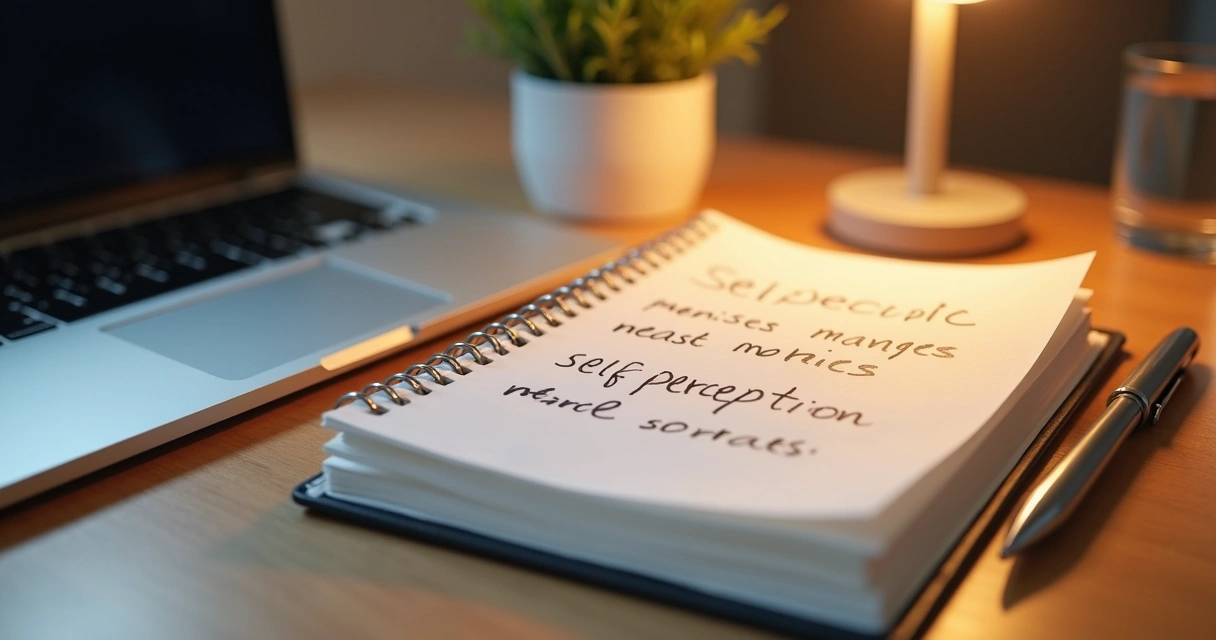 Selpecuplc
menises manges
neast monies
self perception
sorraes.